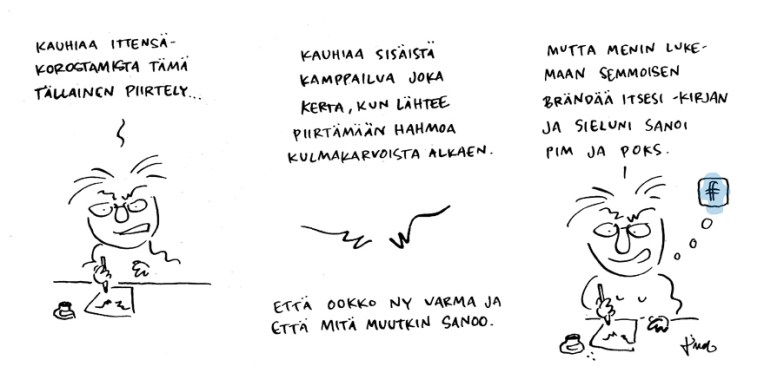 KAUHIAA ITTENSÄ-
KOROSTAMISTA TÄMÄ
TÄLLAINEN PIIRTELY...
KAUHIAA SISÄISTÄ
KAMPPAILUA JOKA
KERTA, KUN LÄHTEE
PIIRTÄMÄÄN HAHMOA
KULMAKARVOISTA ALKAEN.
ETTÄ OOKKO NY VARMA JA
ETTÄ MITÄ MUUTKIN SANOO.
MUTTA MENIN LUKE-
MAAN SEMMOISEN
BRÄNDÄÄ ITSESI -KIRJAN
JA SIELUNI SANOI
PIM JA POKS.
#